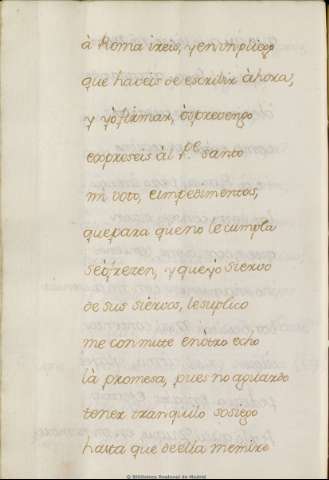 à Roma ireis, y en un pliego
que haveis de escribir àhora,
y yò firmar, òs prevengo
expreseis àl P.e santo
mi voto, è impedimentos,
que para que no le cumpla
se òfrezen, y que yò siervo
de sus sièrvos, le suplico
me conmute en otro echo
là promesa, pues no aguardo
tener tranquilo sosiego
hasta que de ella me miro
© Biblioteca Nacional de Madrid